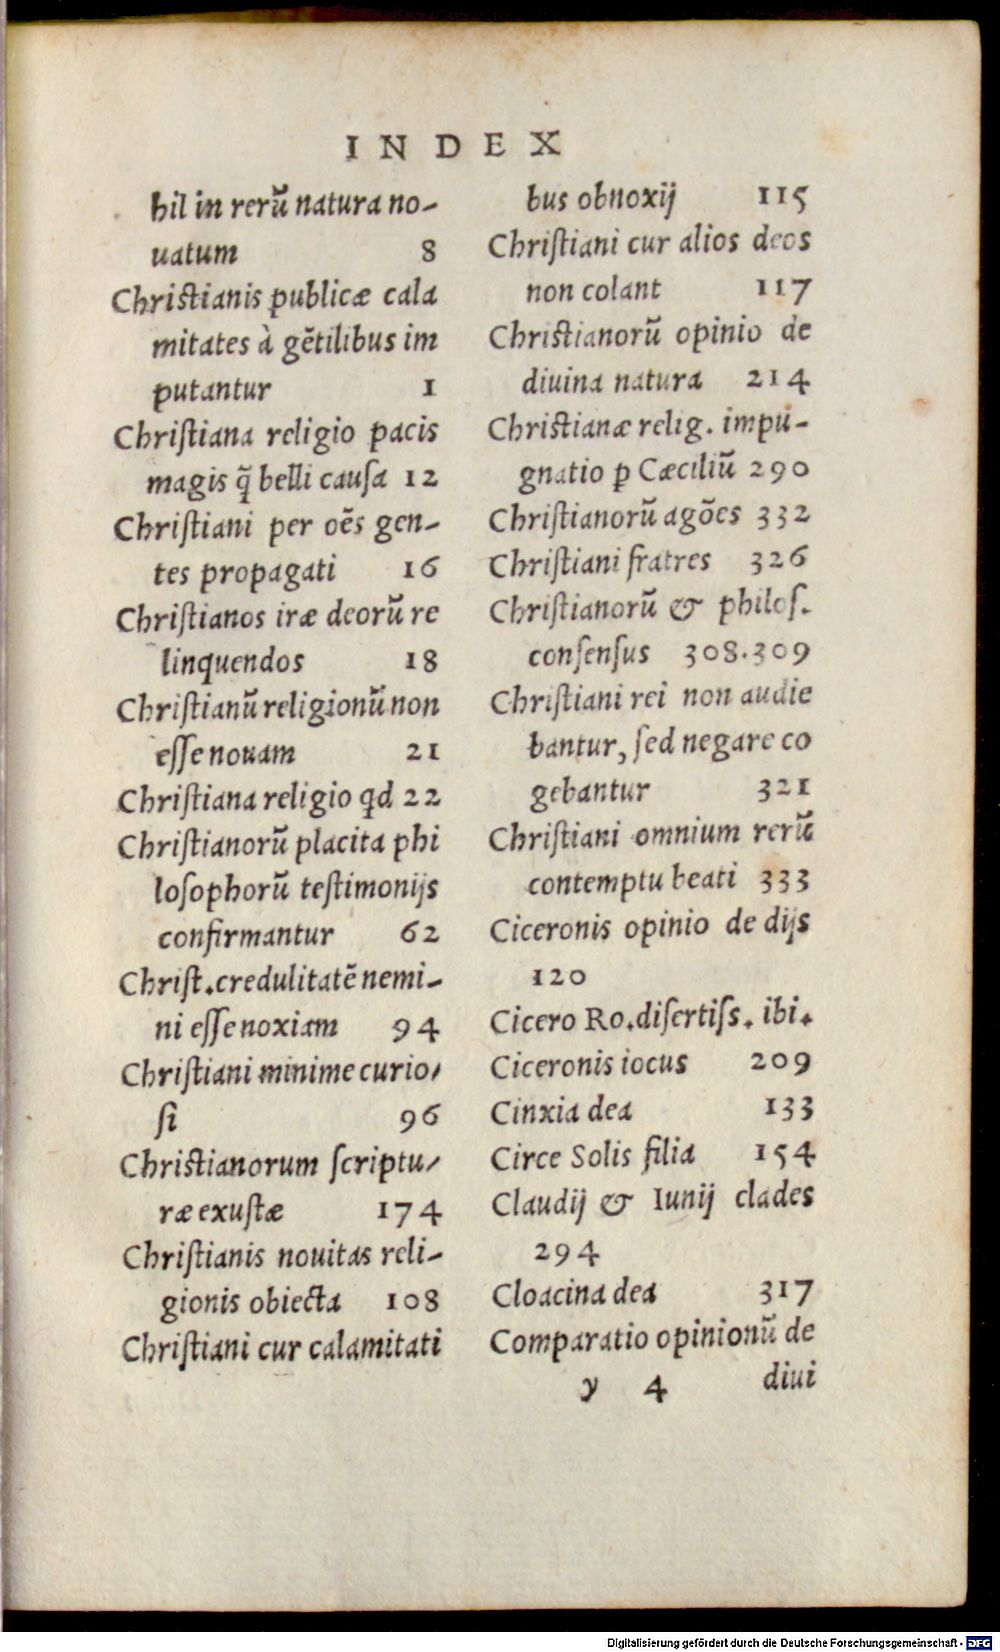 INDEX
hil in rerũ natura no-
uatum 8
Chriſtianis publicæ cala
mitates à gẽtilibus im
putantur 1
Chriſtiana religio pacis
magis q̃ belli cauſa 12
Chriſtiani per oẽs gen-
tes propagati 16
Chriſtianos iræ deorũ re
linquendos 18
Chriſtianũ religionũ non
eſſe nouam 21
Chriſtiana religio qd 22
Chriſtianorũ placita phi
loſophorũ teſtimonijs
confirmantur 62
Chriſt. credulitatẽ nemi-
ni eſſe noxiam 94
Chriſtiani minime curio/
ſi 96
Chriſtianorum ſcriptu/
ræ exuſtæ 174
Chriſtianis nouitas reli-
gionis obiecta 108
Chriſtiani cur calamitati
bus obnoxij 115
Chriſtiani cur alios deos
non colant 117
Chriſtianorũ opinio de
diuina natura 214
Chriſtianæ relig. impu-
gnatio ꝑ Cæciliũ 290
Chriſtianorũ agões 332
Chriſtiani fratres 326
Chriſtianorũ & philoſ.
conſenſus 308.309
Chriſtiani rei non audie
bantur, ſed negare co
gebantur 321
Chriſtiani omnium rerũ
contemptu beati 333
Ciceronis opinio de dijs
120
Cicero Ro. diſertiſs. ibi.
Ciceronis iocus 209
Cinxia dea 133
Circe Solis filia 154
Claudij & Iunij clades
294
Cloacina dea 317
Comparatio opinionũ de
y 4 diui
Digitalisierung gefördert durch die Deutsche Forschungsgemeinschaft - DFG